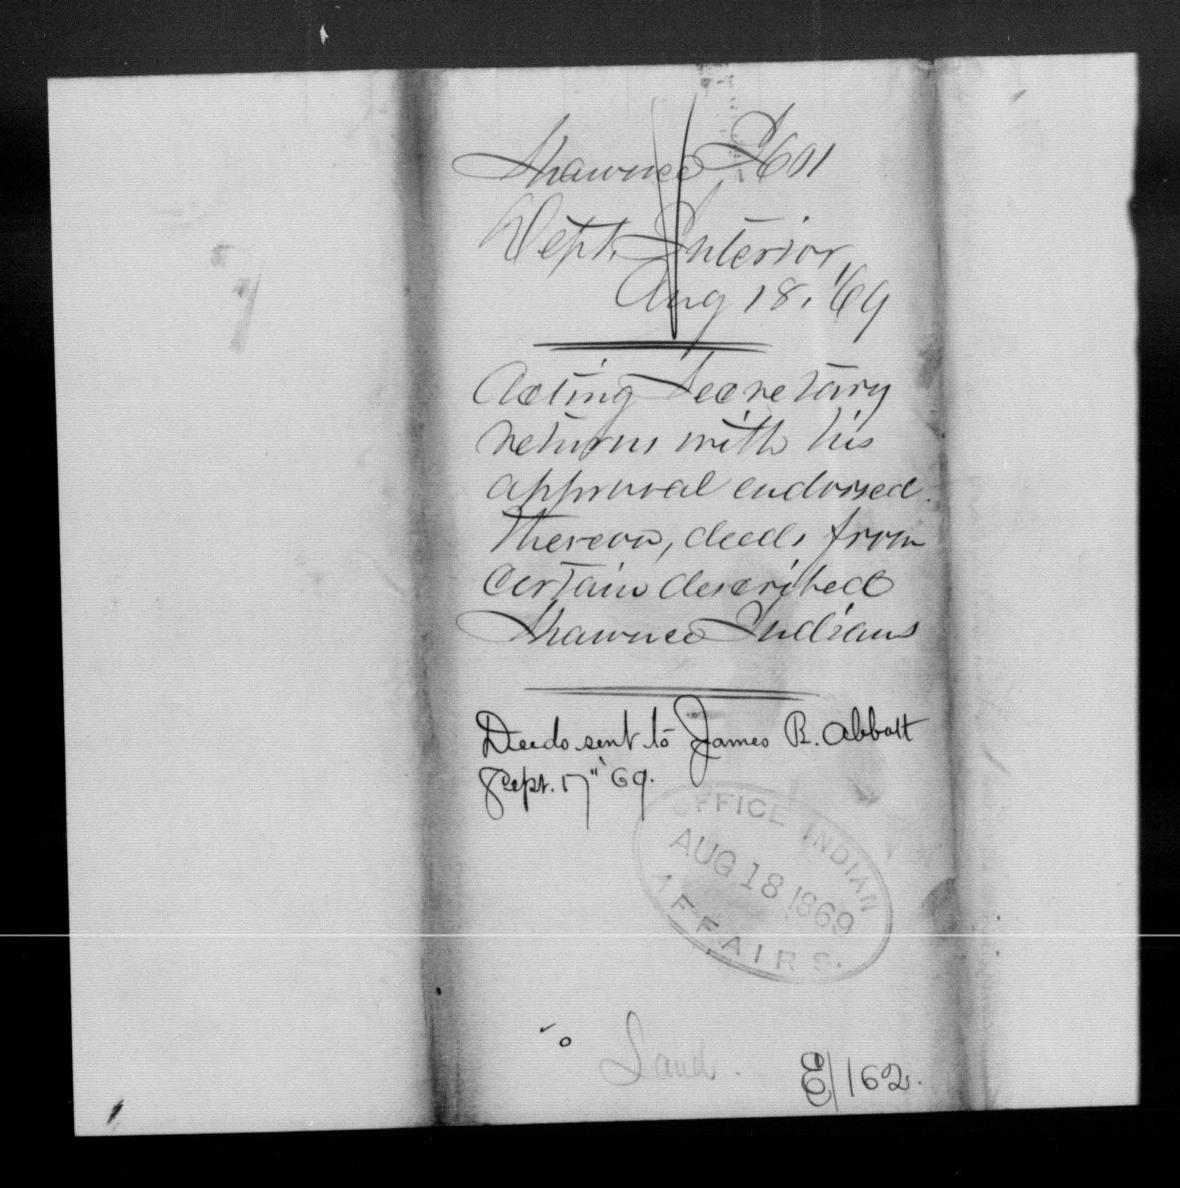 Shawnee I 601
Dept. Interior,
Aug 18, '69
Acting Secretary
returns with his
approval endorsed
thereon, deeds from
certain described
Shawnee Indians
Deeds sent to James B. Abbott
Sept. 17" 69.
OFFICE INDIAN
AUG 18 1869
AFFAIRS.
Land.
E/162.